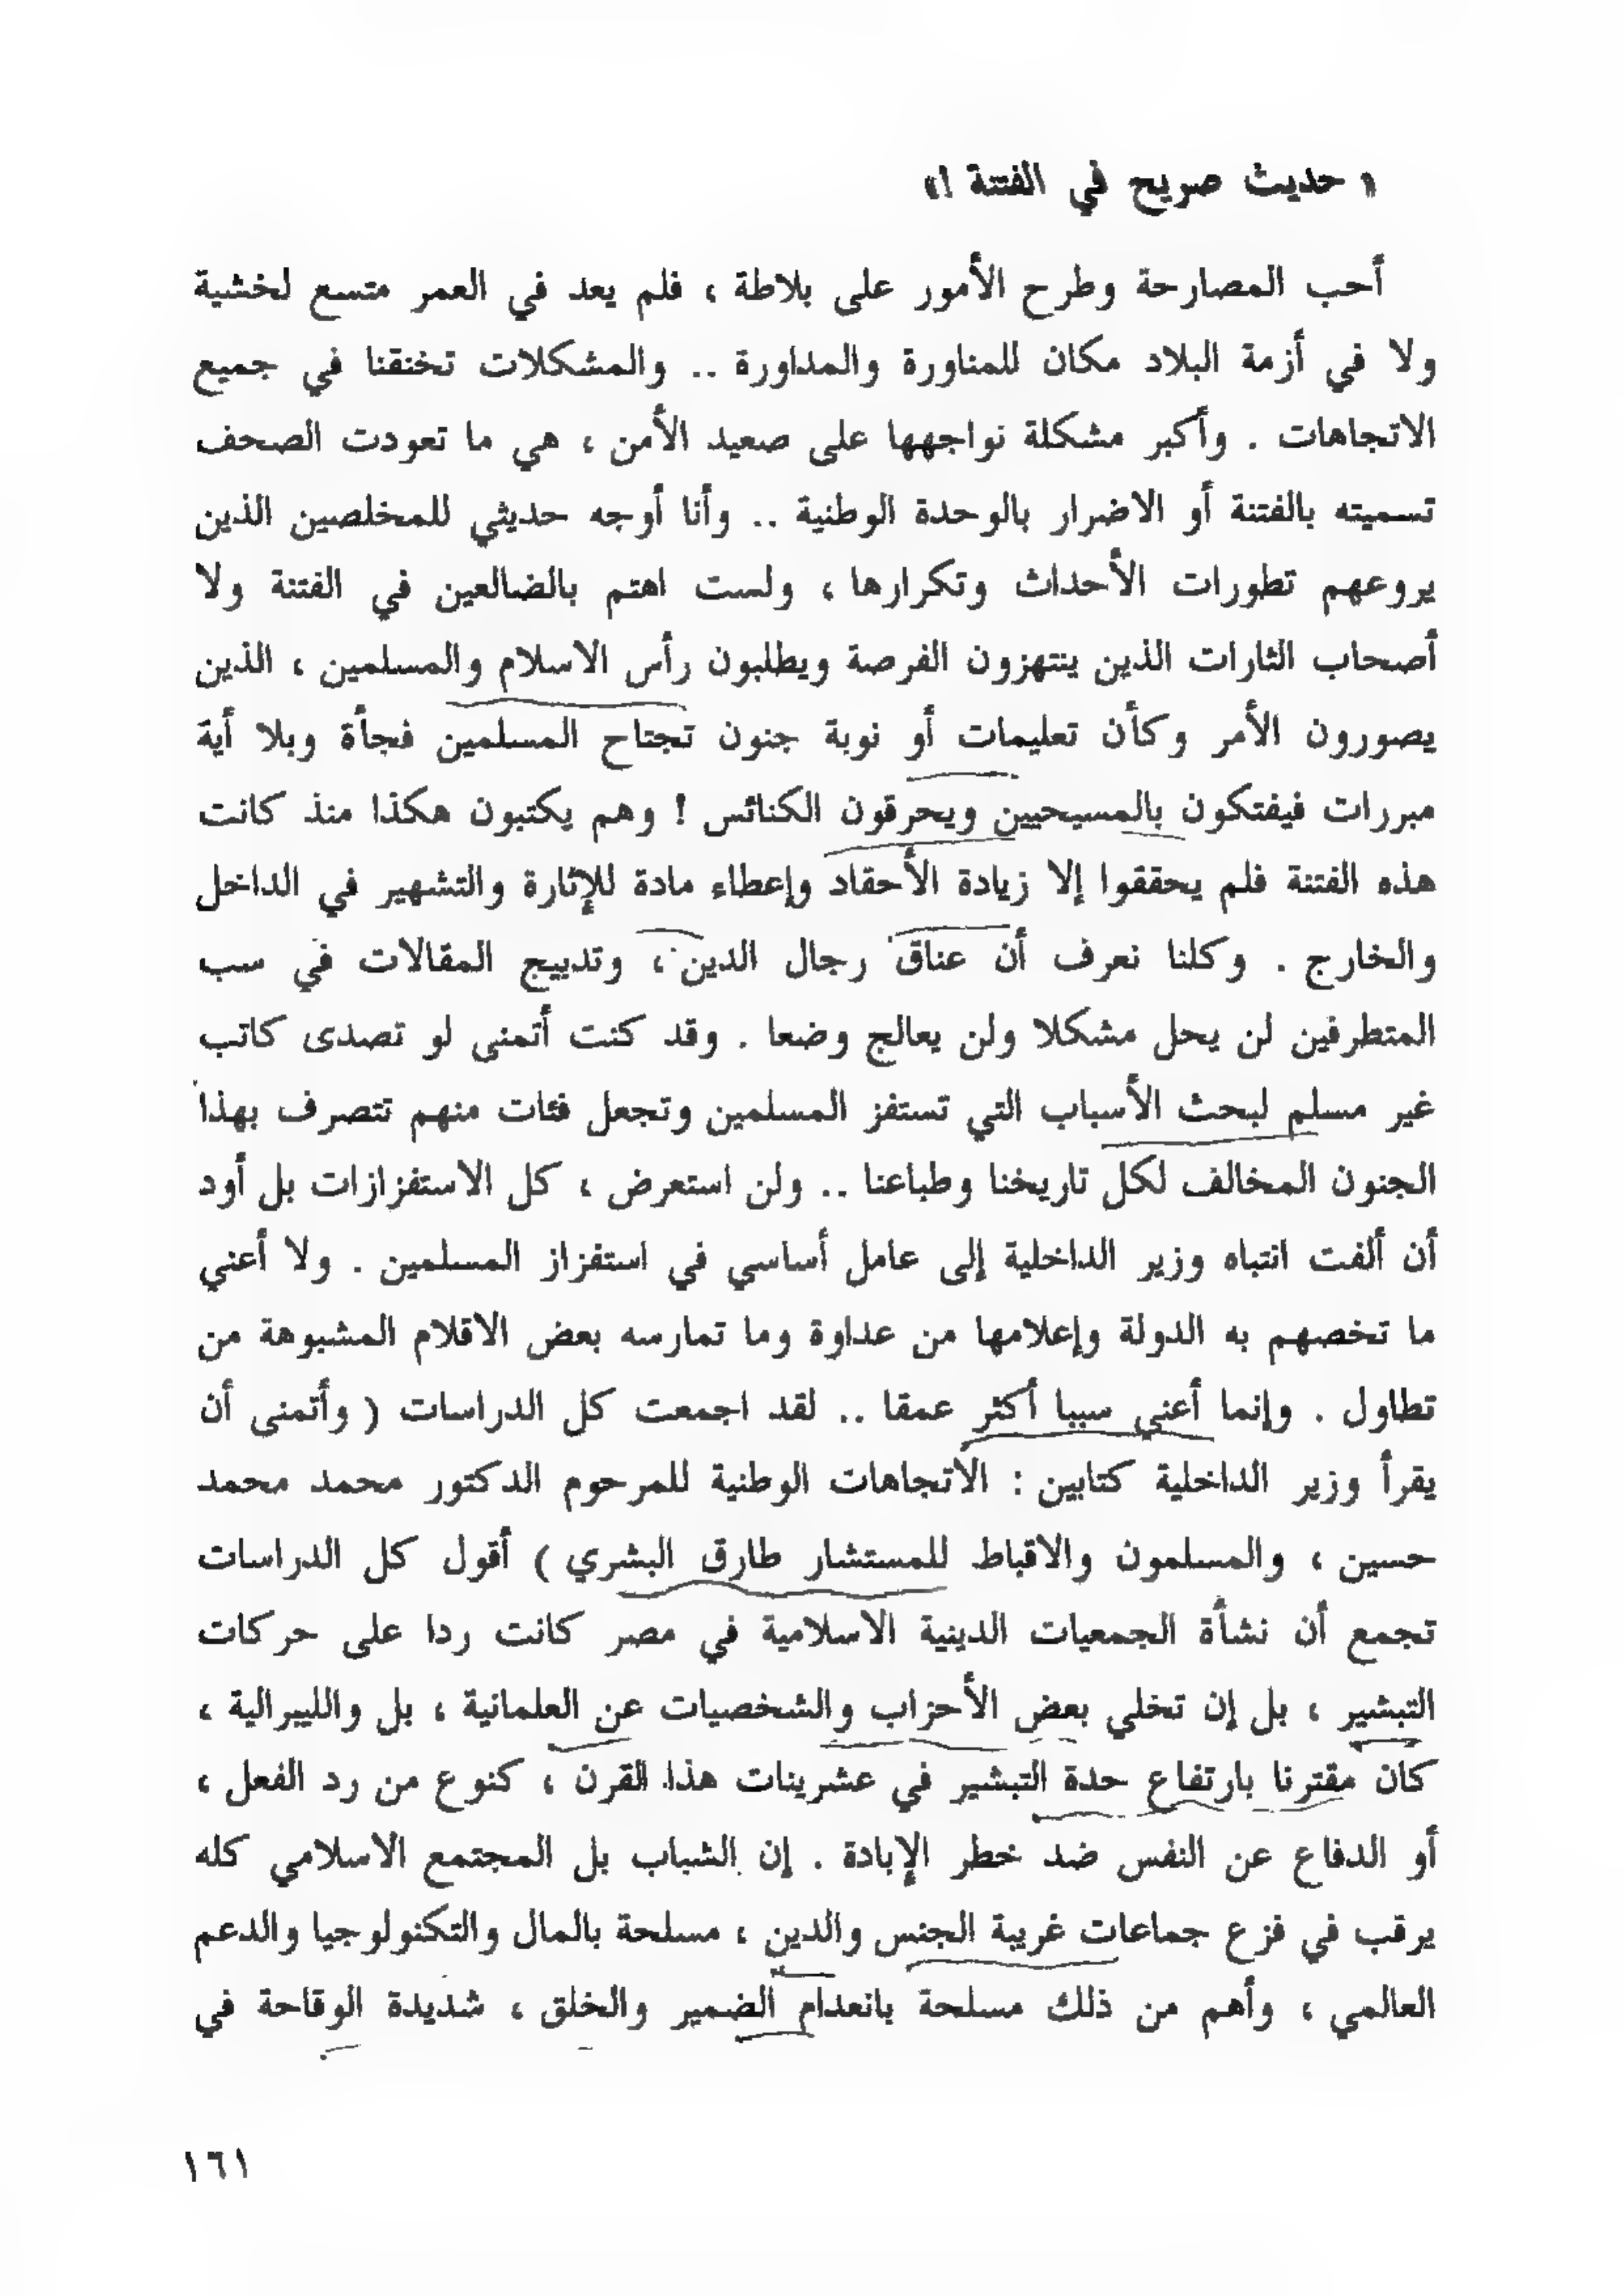 « حديث صريح في الفتنة !»
أحب المصارحة وطرح الأمور على بلاطة ، فلم يعد في العمر متسع لخشية
ولا في أزمة البلاد مكان للمناورة والمداورة .. والمشكلات تخنقنا في جميع
الاتجاهات . وأكبر مشكلة نواجهها على صعيد الأمن ، هي ما تعودت الصحف
تسميته بالفتنة أو الاضرار بالوحدة الوطنية .. وأنا أوجه حديثي للمخلصين الذين
يروعهم تطورات الأحداث وتكرارها ، ولست اهتم بالضالعين في الفتنة ولا
أصحاب الثارات الذين ينتهزون الفرصة ويطلبون رأس الاسلام والمسلمين ، الذين
يصورون الأمر وكأن تعليمات أو نوبة جنون تجتاح المسلمين فجأة وبلا أية
مبررات فيفتكون بالمسيحيين ويحرقون الكنائس ! وهم يكتبون هكذا منذ كانت
هذه الفتنة فلم يحققوا إلا زيادة الأحقاد وإعطاء مادة للإثارة والتشهير في الداخل
والخارج . وكلنا نعرف أن عناق رجال الدين ، وتدبيج المقالات في سب
المتطرفين لن يحل مشكلا ولن يعالج وضعا . وقد كنت أتمنى لو تصدى كاتب
غير مسلم لبحث الأسباب التي تستفز المسلمين وتجعل فئات منهم تتصرف بهذا
الجنون المخالف لكل تاريخنا وطباعنا .. ولن استعرض ، كل الاستفزازات بل أود
أن ألفت انتباه وزير الداخلية إلى عامل أساسي في استفزاز المسلمين . ولا أعني
ما تخصهم به الدولة وإعلامها من عداوة وما تمارسه بعض الاقلام المشبوهة من
تطاول . وإنما أعني سببا أكثر عمقا .. لقد اجمعت كل الدراسات ( وأتمنى أن
يقرأ وزير الداخلية كتابين : الاتجاهات الوطنية للمرحوم الدكتور محمد محمد
حسين ، والمسلمون والاقباط للمستشار طارق البشري ) أقول كل الدراسات
تجمع أن نشأة الجمعيات الدينية الاسلامية في مصر كانت ردا على حركات
التبشير ، بل إن تخلي بعض الأحزاب والشخصيات عن العلمانية ، بل والليبرالية ،
كان مقترنا بارتفاع حدة التبشير في عشرينات هذا القرن ، كنوع من رد الفعل ،
أو الدفاع عن النفس ضد خطر الإبادة . إن الشباب بل المجتمع الاسلامي كله
يرقب في فزع جماعات غريبة الجنس والدين ، مسلحة بالمال والتكنولوجيا والدعم
العالمي ، وأهم من ذلك مسلحة بانعدام الضمير والخلق ، شديدة الوقاحة في
١٦١